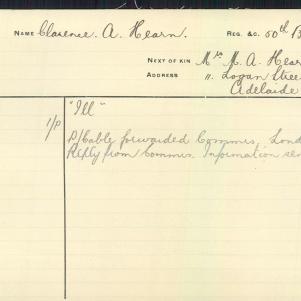 NAME Clarence. A. Hearn. REG. &C. 50th B
NEXT OF KIN Mrs M. A. Hear
ADDRESS 11. Logan Stree
Adelaide
"Ill"
1/P P/Cable forwarded Commis, Lond
Reply from Commis. Information se